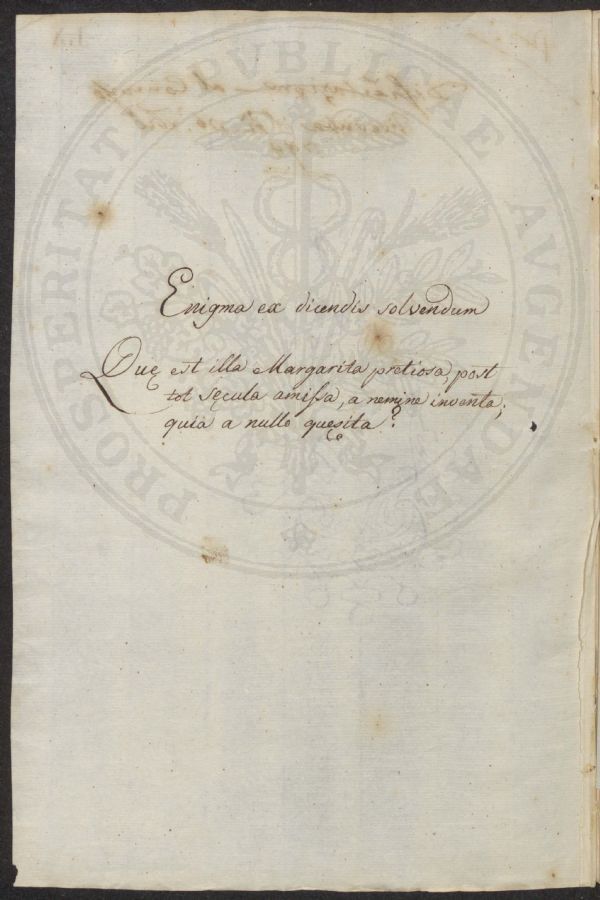 PROSPERITATI PVBLICAE AVGENDAE
Enigma ex dicendis solvendum
Quę est illa Margarita pretiosa, post
tot sęcula amiſsa, a nemine inventa,
quia a nullo quęsita?